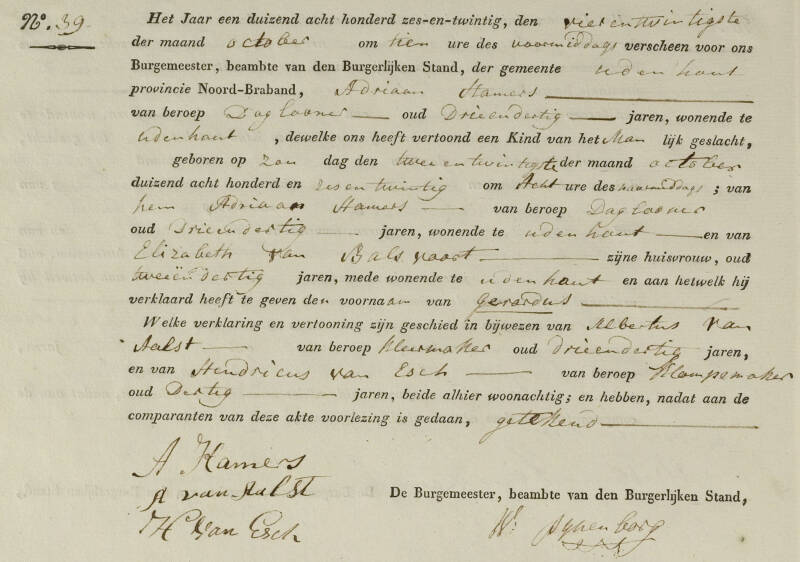 No. 39
Het Jaar een duizend acht honderd zes-en-twintig, den vierentwintigste
der maand october om tien ure des voormiddags verscheen voor ons
Burgemeester, beambte van den Burgerlijken Stand, der gemeente udenhout
provincie Noord-Braband, Adriaan Hamers
van beroep Daglooner oud Drieendertig jaren, wonende te
udenhout, dewelke ons heeft vertoond een Kind van het Man lijk geslacht,
geboren op zon dag den tweeentwintigste der maand october
duizend acht honderd en zesentwintig om Acht ure des namiddags; van
hem Adriaan Hamers van beroep Daglooner
oud Drieendertig jaren, wonende te udenhout en van
Elizabeth van Balsvoort zijne huisvrouw, oud
tweeëndertig jaren, mede wonende te udenhout en aan hetwelk hij
verklaard heeft te geven den voornaam van Gerardus
Welke verklaring en vertooning zijn geschied in bijwezen van Albertus van
Aalst van beroep Kleermaker oud drieendertig jaren,
en van Hendricus van Esch van beroep Klompemaker
oud Dertig jaren, beide alhier woonachtig; en hebben, nadat aan de
comparanten van deze akte voorlezing is gedaan, getekend
A Hamers
A van Aalst
H van Esch
De Burgemeester, beambte van den Burgerlijken Stand,